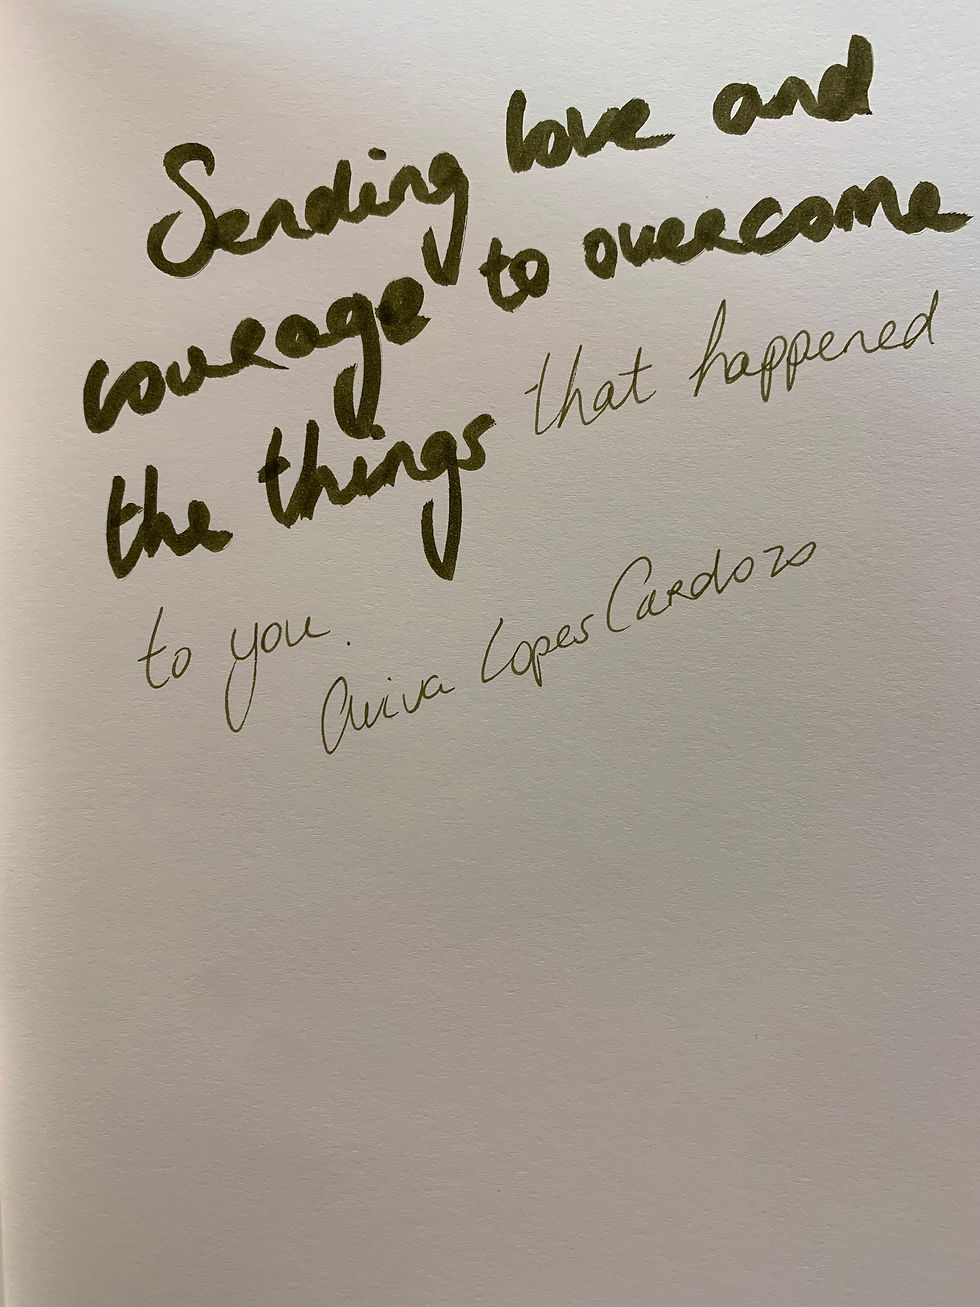 Sending love and
courage to overcome
the things that happened
to you.
Aviva Lopes Cardozo